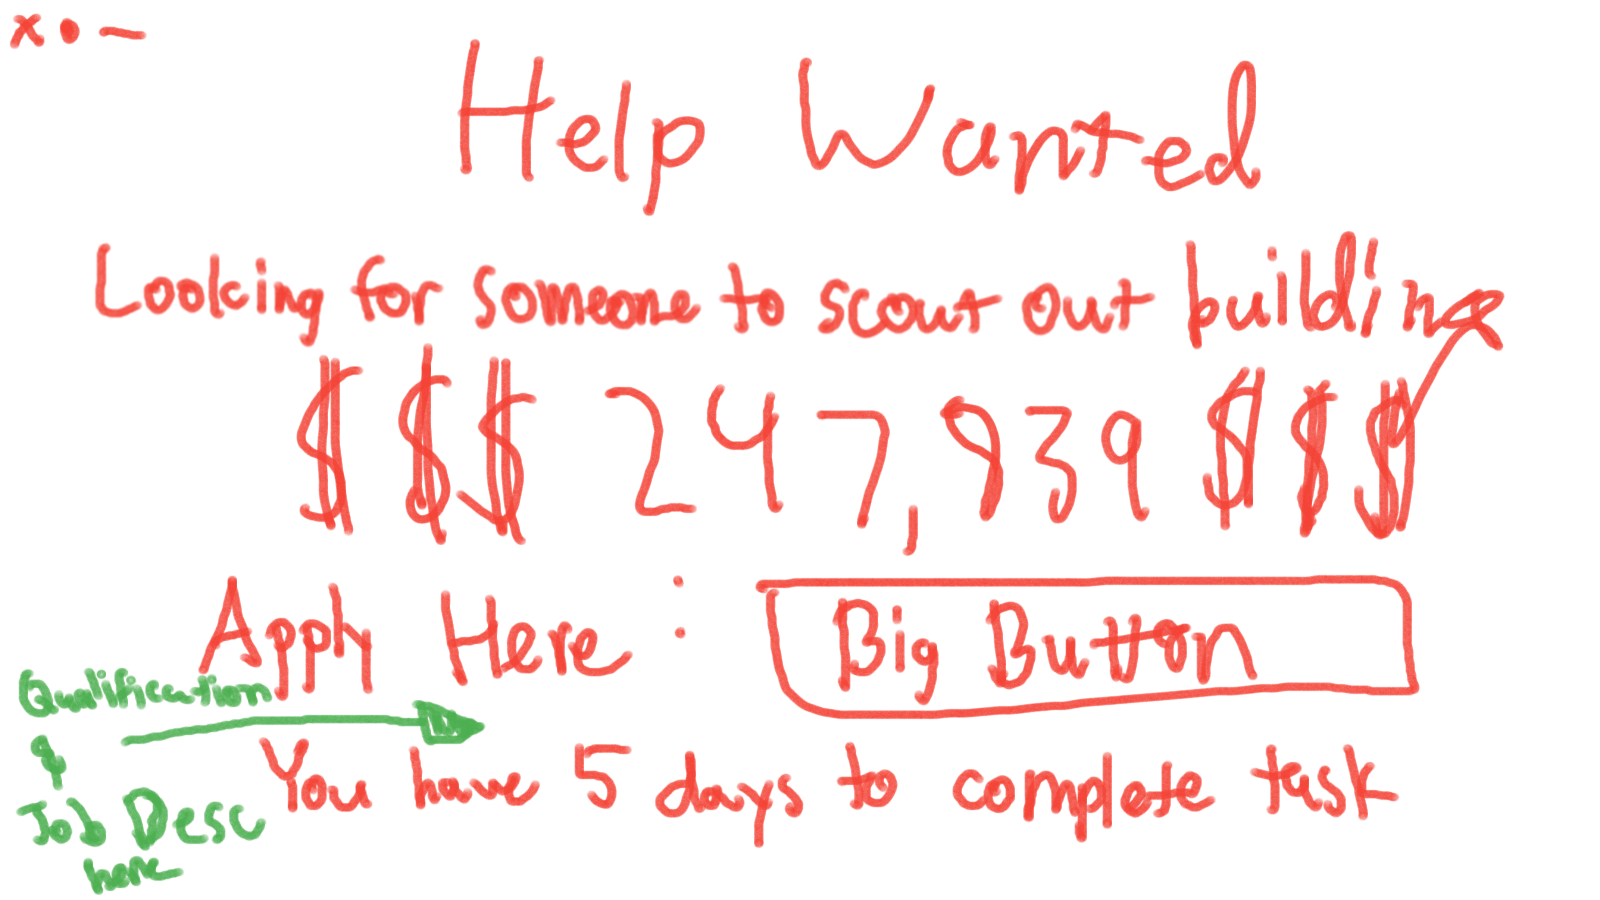 x • —
Help Wanted
Looking for someone to scout out building
$ $ $ 247,939 $ $ $
Apply Here : Big Button
Qualification
&
Job Desc
here
You have 5 days to complete task